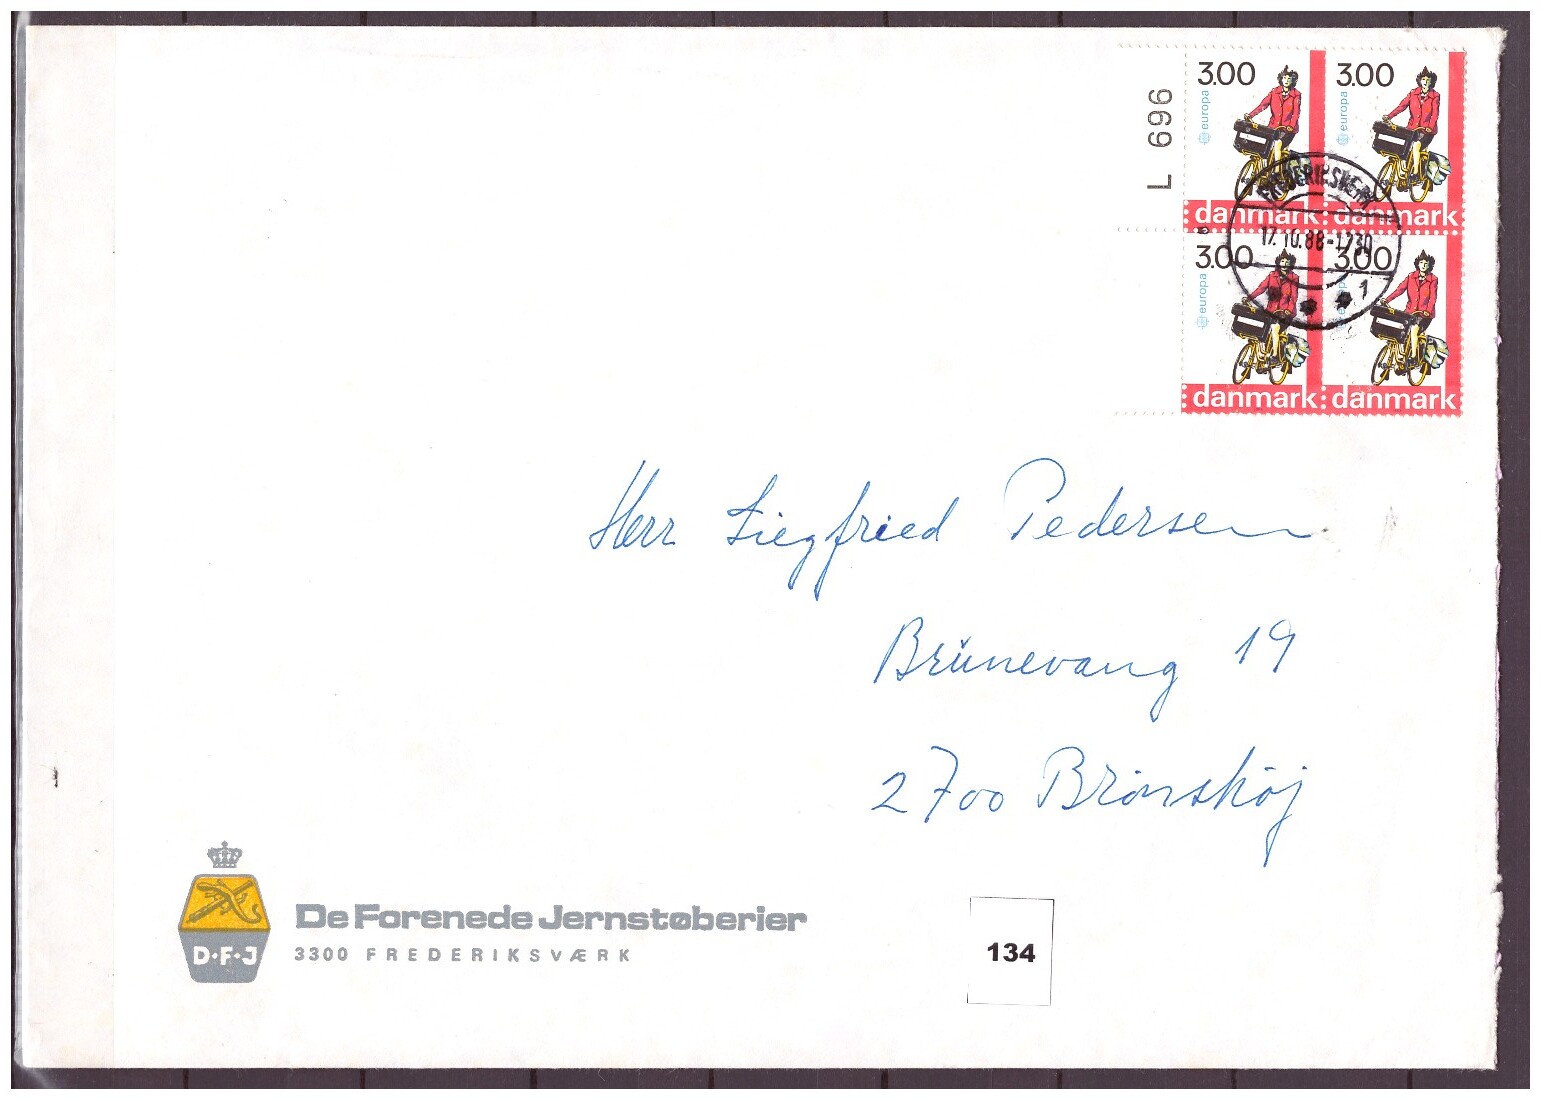 L 696
3.00 3.00
europa europa
danmark danmark
FREDERIKSVÆRK
17.10.88-1730
1
3.00 3.00
europa
danmark danmark
Herr Siegfried Pedersen
Brünevang 19
2700 Brönshöj
De Forenede Jernstøberier
D·F·J
3300 FREDERIKSVÆRK
134